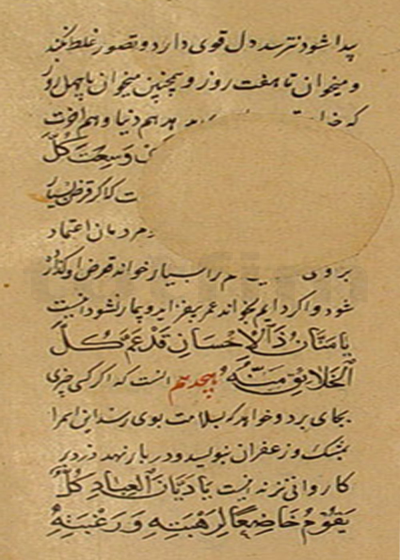 پیدا شود نترسد دل قوی دارد و تصور غلط نکند
و میخوان تا هفت روز و همچنین میخوان تا چهل روز
که خدا هم دنیا و هم آخرت
وَسِعْتَ كُلَّ
که اگر قرض بسیار
مردمان اعتماد
بر وی را بسیار خواند قرض او گذارده
شود و اگر دایم بخواند عمر بیفزاید و بیمار نشود اینست
یا مَنَّانُ ذَا الْاِحْسَانِ قَدْ عَمَّ كُلَّ
الْخَلَائِقِ مَنُّهُ هیجدهم آنست که اگر کسی چیزی
بجای برد و خواهد که بسلامت بوی رسد این اسم را
بمشک و زعفران بنویسد و در بار نهد دزد بر
کاروانی نزند اینست یا دَیَّانَ الْعِبَادِ كُلٌّ
یَقُومُ خَاضِعًا لِرَهْبَتِهِ وَ رَغْبَتِهِ